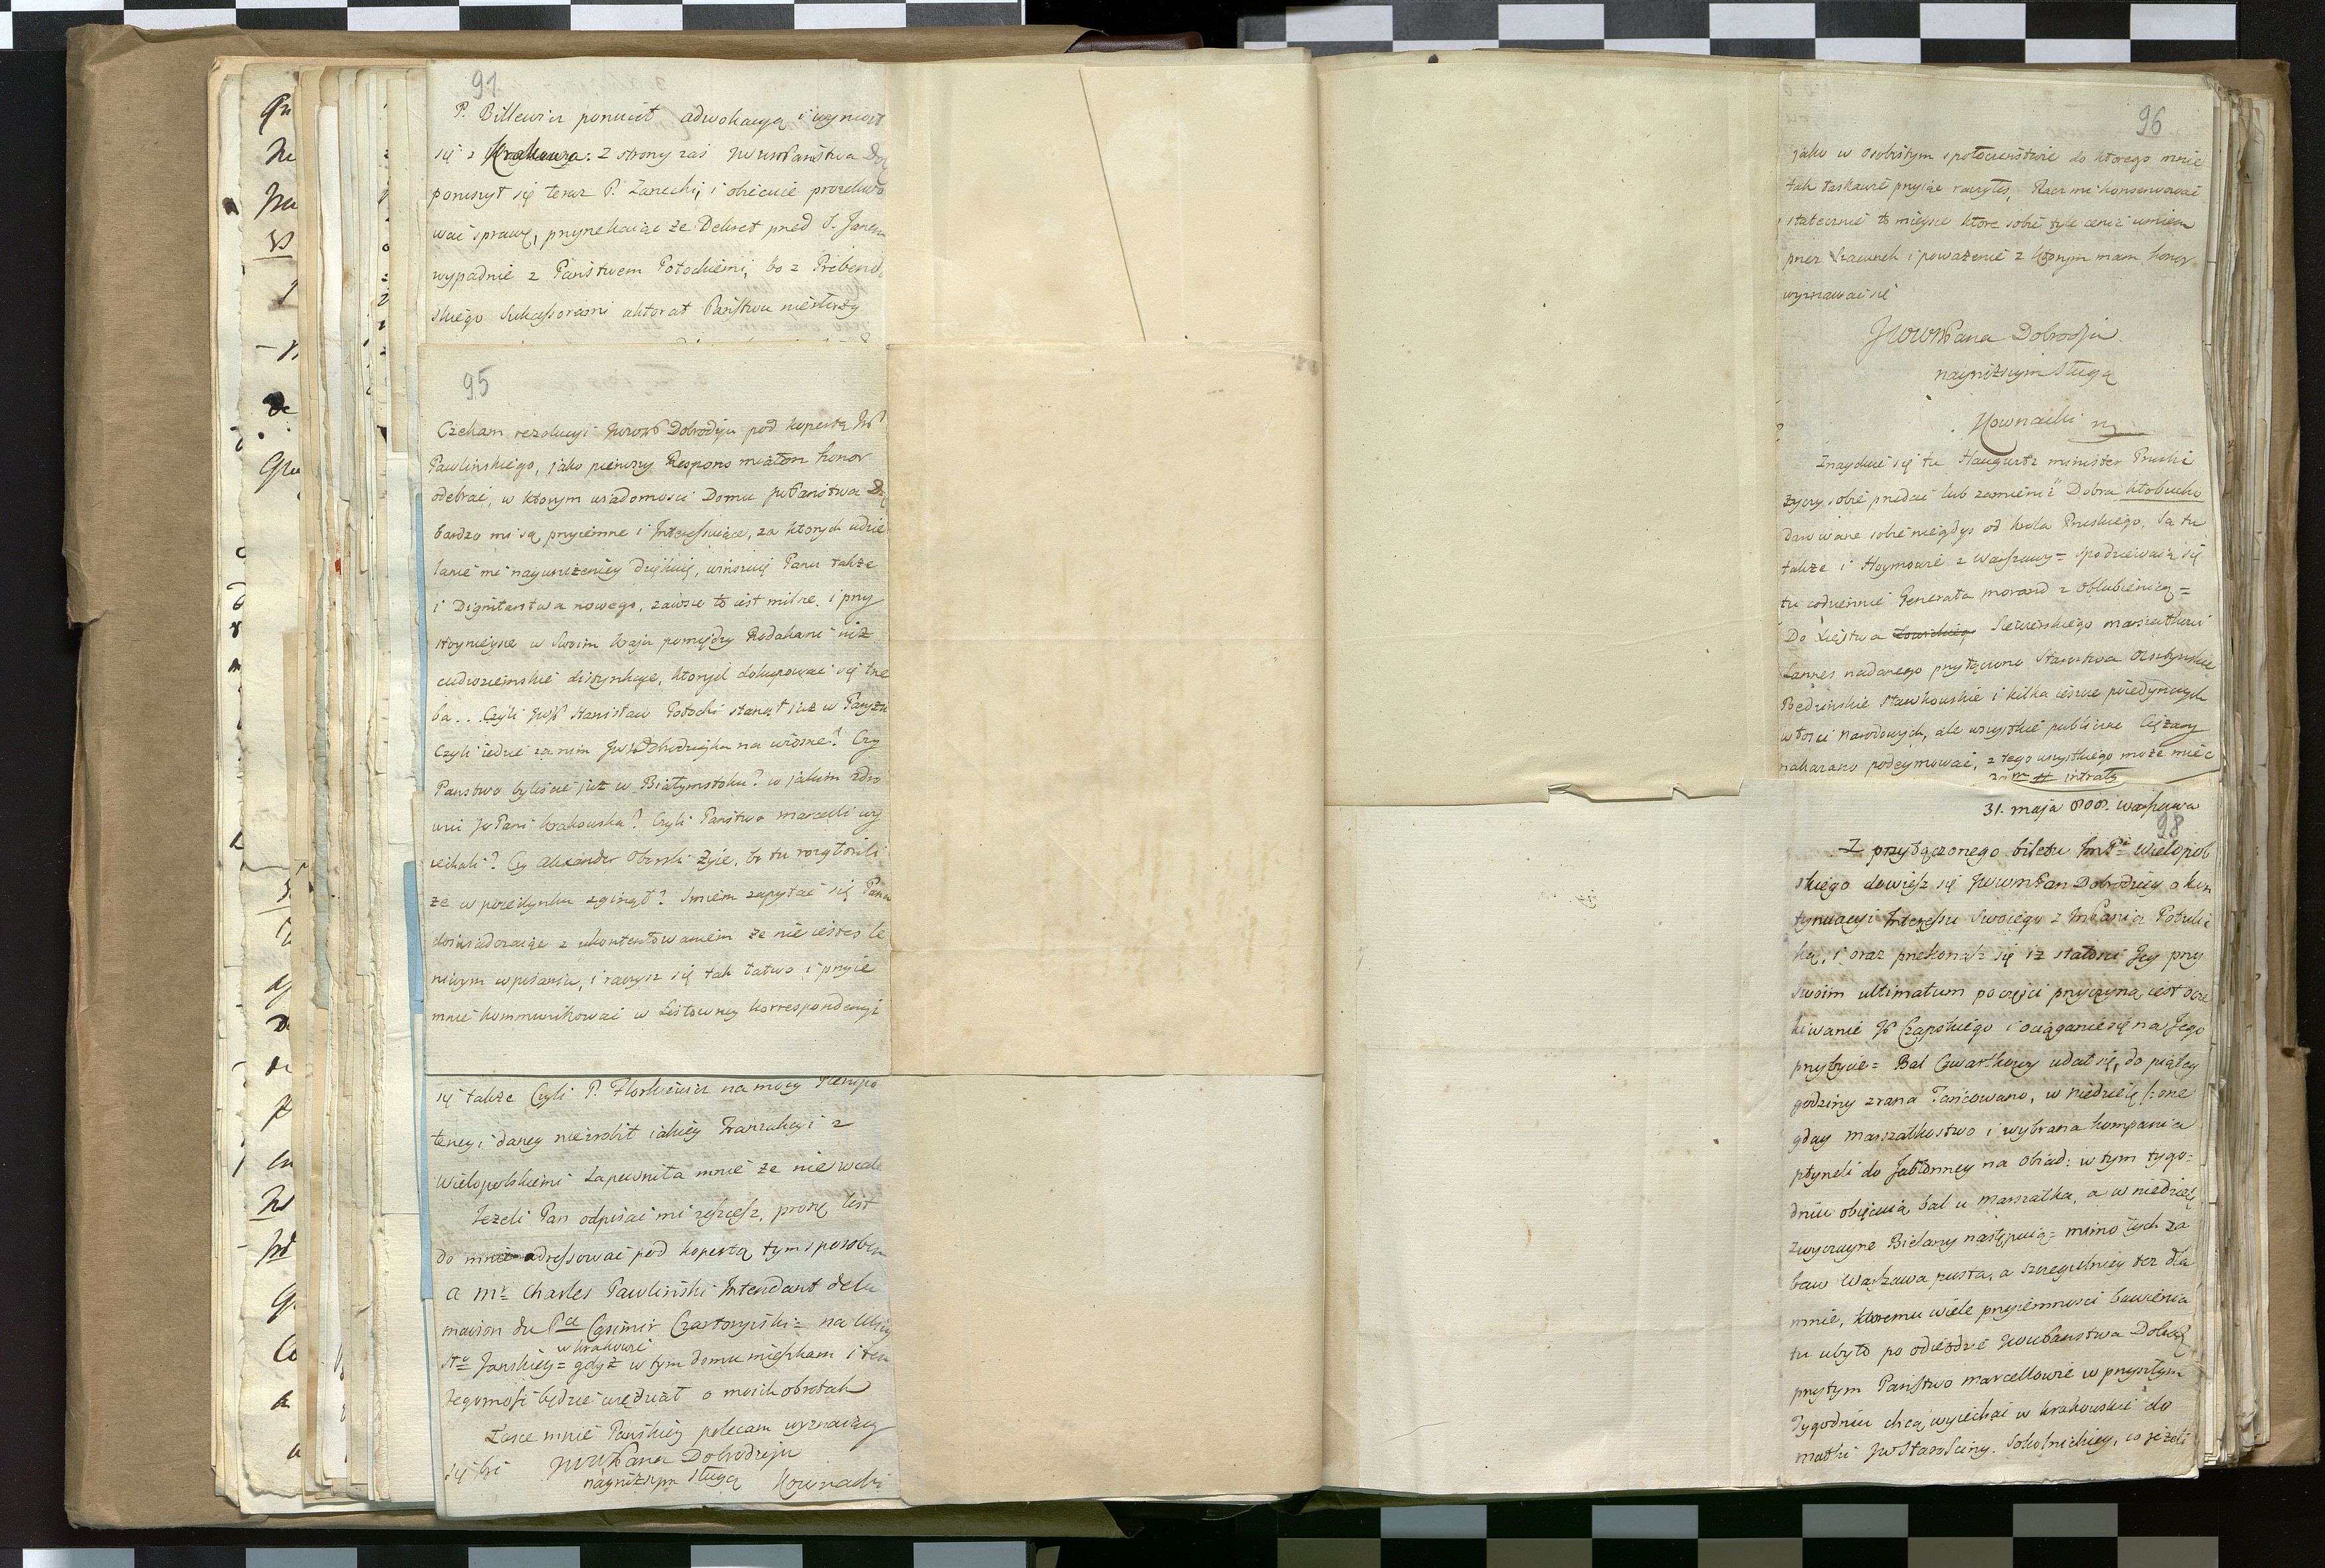 91
P. Billewicz porzucił adwokacyą i wyniosł
się z Krakowa: z strony zaś JWWPaństwa
poruszył się teraz P. Zarecki, i obiecuie prosekwo
wać sprawę, przyrzekaiąc że Dekret przed S. Janem
wypadnie z Państwem Potockiemi, bo z Prebend
skiego Sukcessorami aktorat Państwu niesłuży
95
Czekam rezolucyi JWWP Dobrodzieja pod kopertą JP
Pawlinskiego, jako pierwszy Respons miałem honor
odebrać, w ktorym wiadomosci Domu JWPaństwa
bardzo mi są przyiemne i Interessuiące, za ktorych udzie
lanie mi nayuniżeniey dziękuię, winszuię Panu także
i Dignitarstwa nowego, zawsze to iest miłe i przy
stoynieysze w Swoim kraju pomiędzy Rodakami niż
cudzoziemskie distynkcye, ktorych dokupować się trze
ba.. Czyli JWP Stanisław Potocki stanął już w Paryżu
Czyli iedzie za nim JWP Dobrodzieyka na wiosnę? Czy
Państwo byliście już w Białymstoku? w jakim zdro
wiu JWPani Krakowska? Czyli Państwo Marcelli wy
iechali? Czy Alexander Oborski żyie, bo tu rozgłosili
że w poiedynku zginął? Smiem zapytać się Pana
doswiadczaiąc z ukontentowaniem że nie iesteś le
niwym w pisaniu, i raczysz się tak łatwo i przyie
mnie kommunikować w Listowney korrespondencyi
się także Czyli P. Florkiewicz na mocy Plenipo
tencyi daney niezrobił iakiey Tranzakcyi z
Wielopolskiemi zapewniła mnie że nie wcale
Jeżeli Pan odpisać mi zechcesz, proszę list
do mnie adressować pod kopertą tym sposobem
a Mr Charles Pawliński Intendant dela
maison du Pce Casimir Czartoryiski = na Ulicy
w Krakowie
Sto Janskiey = gdyż w tym domu mieszkam i ten
Jegomość będzie wiedział o moich obrotach
Łasce mnie Pańskiey polecam wyznaiący
się być JWWPana Dobrodzieja
nayniższym sługą Kownacki
96
jako w osobistym społeczeństwie do ktorego mnie
tak łaskawie przyiąć raczyłeś, Racz mi konserwować
statecznie to mieysce które sobie tyle cenić umiem
przez szacunek i poważenie z ktorym mam honor
wyznawać się
JWWWPana Dobrodzieja
nayniższym Sługą
Kownacki
Znayduie się tu Haugwitz minister Pruski
życzy sobie przedać lub zamienić Dobra Kłobucko
darowane sobie niegdys od krola Pruskiego, Są tu
także i Hoymowie z Warszawy = spodziewaią się
tu codziennie Generała Morand z Oblubienicą =
Do Xięstwa Łowickiego Siewierskiego marszałkowi
Lannes nadanego przyłączono Starostwa Olsztynskie
Będzinskie Sławkowskie i kilka ieszcze poiedynczych
włosci narodowych, ale wszystkie publiczne ciężary
nakazano podeymować, z tego wszystkiego może mieć
intraty
31. maja 808. Warszawa
98
Z przyłączonego biletu ImPa Wielopol
skiego dowiesz się JWWmPan Dobrodziey o kon
tynuacyi Interessu Swoiego z ImPanią Potulic
ką, i oraz przekonasz się iż stałosci Jey przy
swoim ultimatum poczęści przyczyną iest ocze
kiwanie JP Czapskiego i ociąganie się na Jego
przybycie = Bal Czwartkowy udał się, do piątey
godziny zrana Tańcowano, w niedzielę
gday Marszałkostwo i wybrana kompania
płyneli do Jabłonney na obiad: w tym tygo=
dniu obiecuią bal u Marszałka, a w niedzielę
zwyczayne Bielany następuią = mimo tych za
baw Warszawa pusta, a szczegulniey też dla
mnie, ktoremu wiele przyiemnosci bawienia
tu ubyło po odieździe JWWPaństwa Dobrodz
przytym Państwo Marcellowie w przyszłym
Tygodniu chcą wyiechać w krakowskie do
matki JWStarosciny. Sokolnickiey, co jeżeli